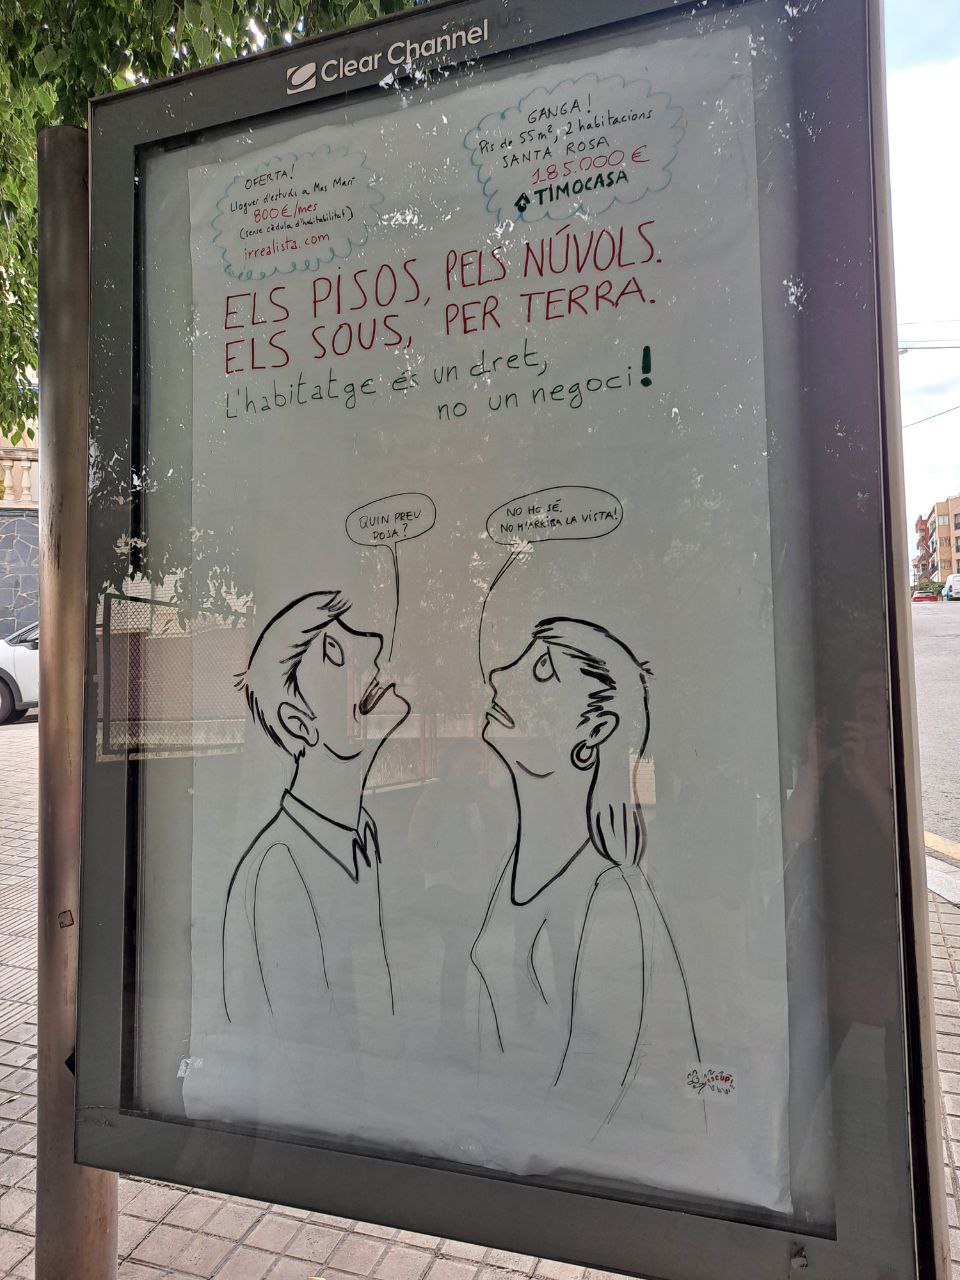 Clear Channel
OFERTA!
Lloguer d'estudi a Mas Marí
800€/mes
(sense cèdula d'habitabilitat)
irrealista.com
GANGA!
Pis de 55m², 2 habitacions
SANTA ROSA
185.000 €
TIMOCASA
ELS PISOS, PELS NÚVOLS.
ELS SOUS, PER TERRA.
L'habitatge és un dret,
no un negoci!
QUIN PREU
POSA?
NO HO SÉ.
NO M'ARRIBA LA VISTA!
ESCUPI